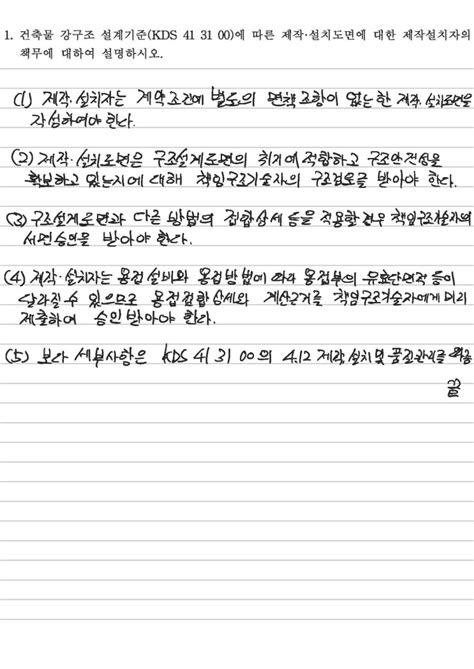 1. 건축물 강구조 설계기준(KDS 41 31 00)에 따른 제작·설치도면에 대한 제작설치자의
책무에 대하여 설명하시오.
(1) 제작·설치자는 계약조건에 별도의 면책조항이 없는한 제작·설치도면을
작성하여야 한다.
(2) 제작·설치도면은 구조설계도면의 취지에 적합하고 구조안전성을
확보하고 있는지에 대해 책임구조기술자의 구조검토를 받아야 한다.
(3) 구조설계도면과 다른 방법의 접합상세 등을 적용할 경우 책임구조기술자의
서면승인을 받아야 한다.
(4) 제작·설치자는 용접설비와 용접방법에 따라 용접부의 유효단면적 등이
달라질 수 있으므로 용접접합 상세와 계산근거를 책임구조기술자에게 미리
제출하여 승인 받아야 한다.
(5) 보다 세부사항은 KDS 41 31 00의 4.12 제작,설치 및 품질관리를
끝